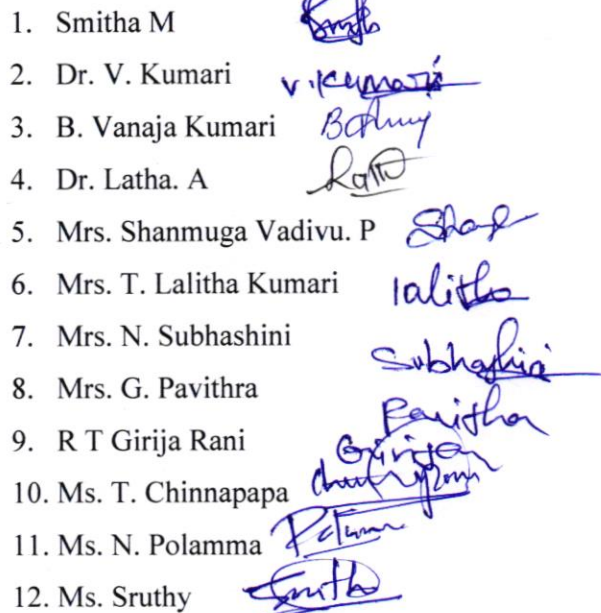 1. Smitha M
2. Dr. V. Kumari V. Kumari
3. B. Vanaja Kumari
4. Dr. Latha. A
5. Mrs. Shanmuga Vadivu. P
6. Mrs. T. Lalitha Kumari lalitha
7. Mrs. N. Subhashini Subhashini
8. Mrs. G. Pavithra Pavithra
9. R T Girija Rani Girija
10. Ms. T. Chinnapapa
11. Ms. N. Polamma
12. Ms. Sruthy